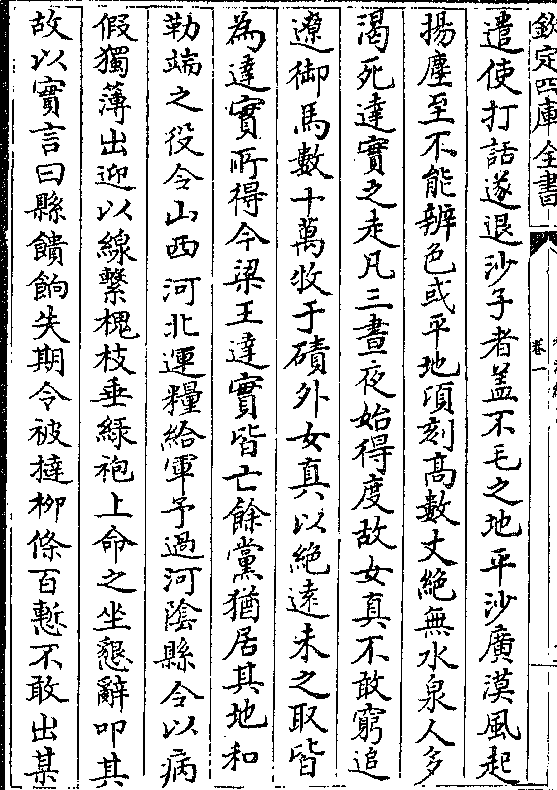 欽定四庫全書
卷一
遣使打話遂退沙子者盖不毛之地平沙廣漠風起
揚塵至不能辨色或平地頃刻高數丈絶無水泉人多
渴死達實之走凡三晝夜始得度故女真不敢窮追
遼御馬數十萬牧于磧外女真以絶逺未之取皆
為達實所得今梁王達實皆亡餘黨猶居其地和
勒端之役令山西河北運糧給軍予過河隂縣令以病
假獨薄出迎以線繫槐枝垂緑袍上命之坐懇辭叩其
故以實言曰縣饋餉失期令被撻柳條百慙不敢出某